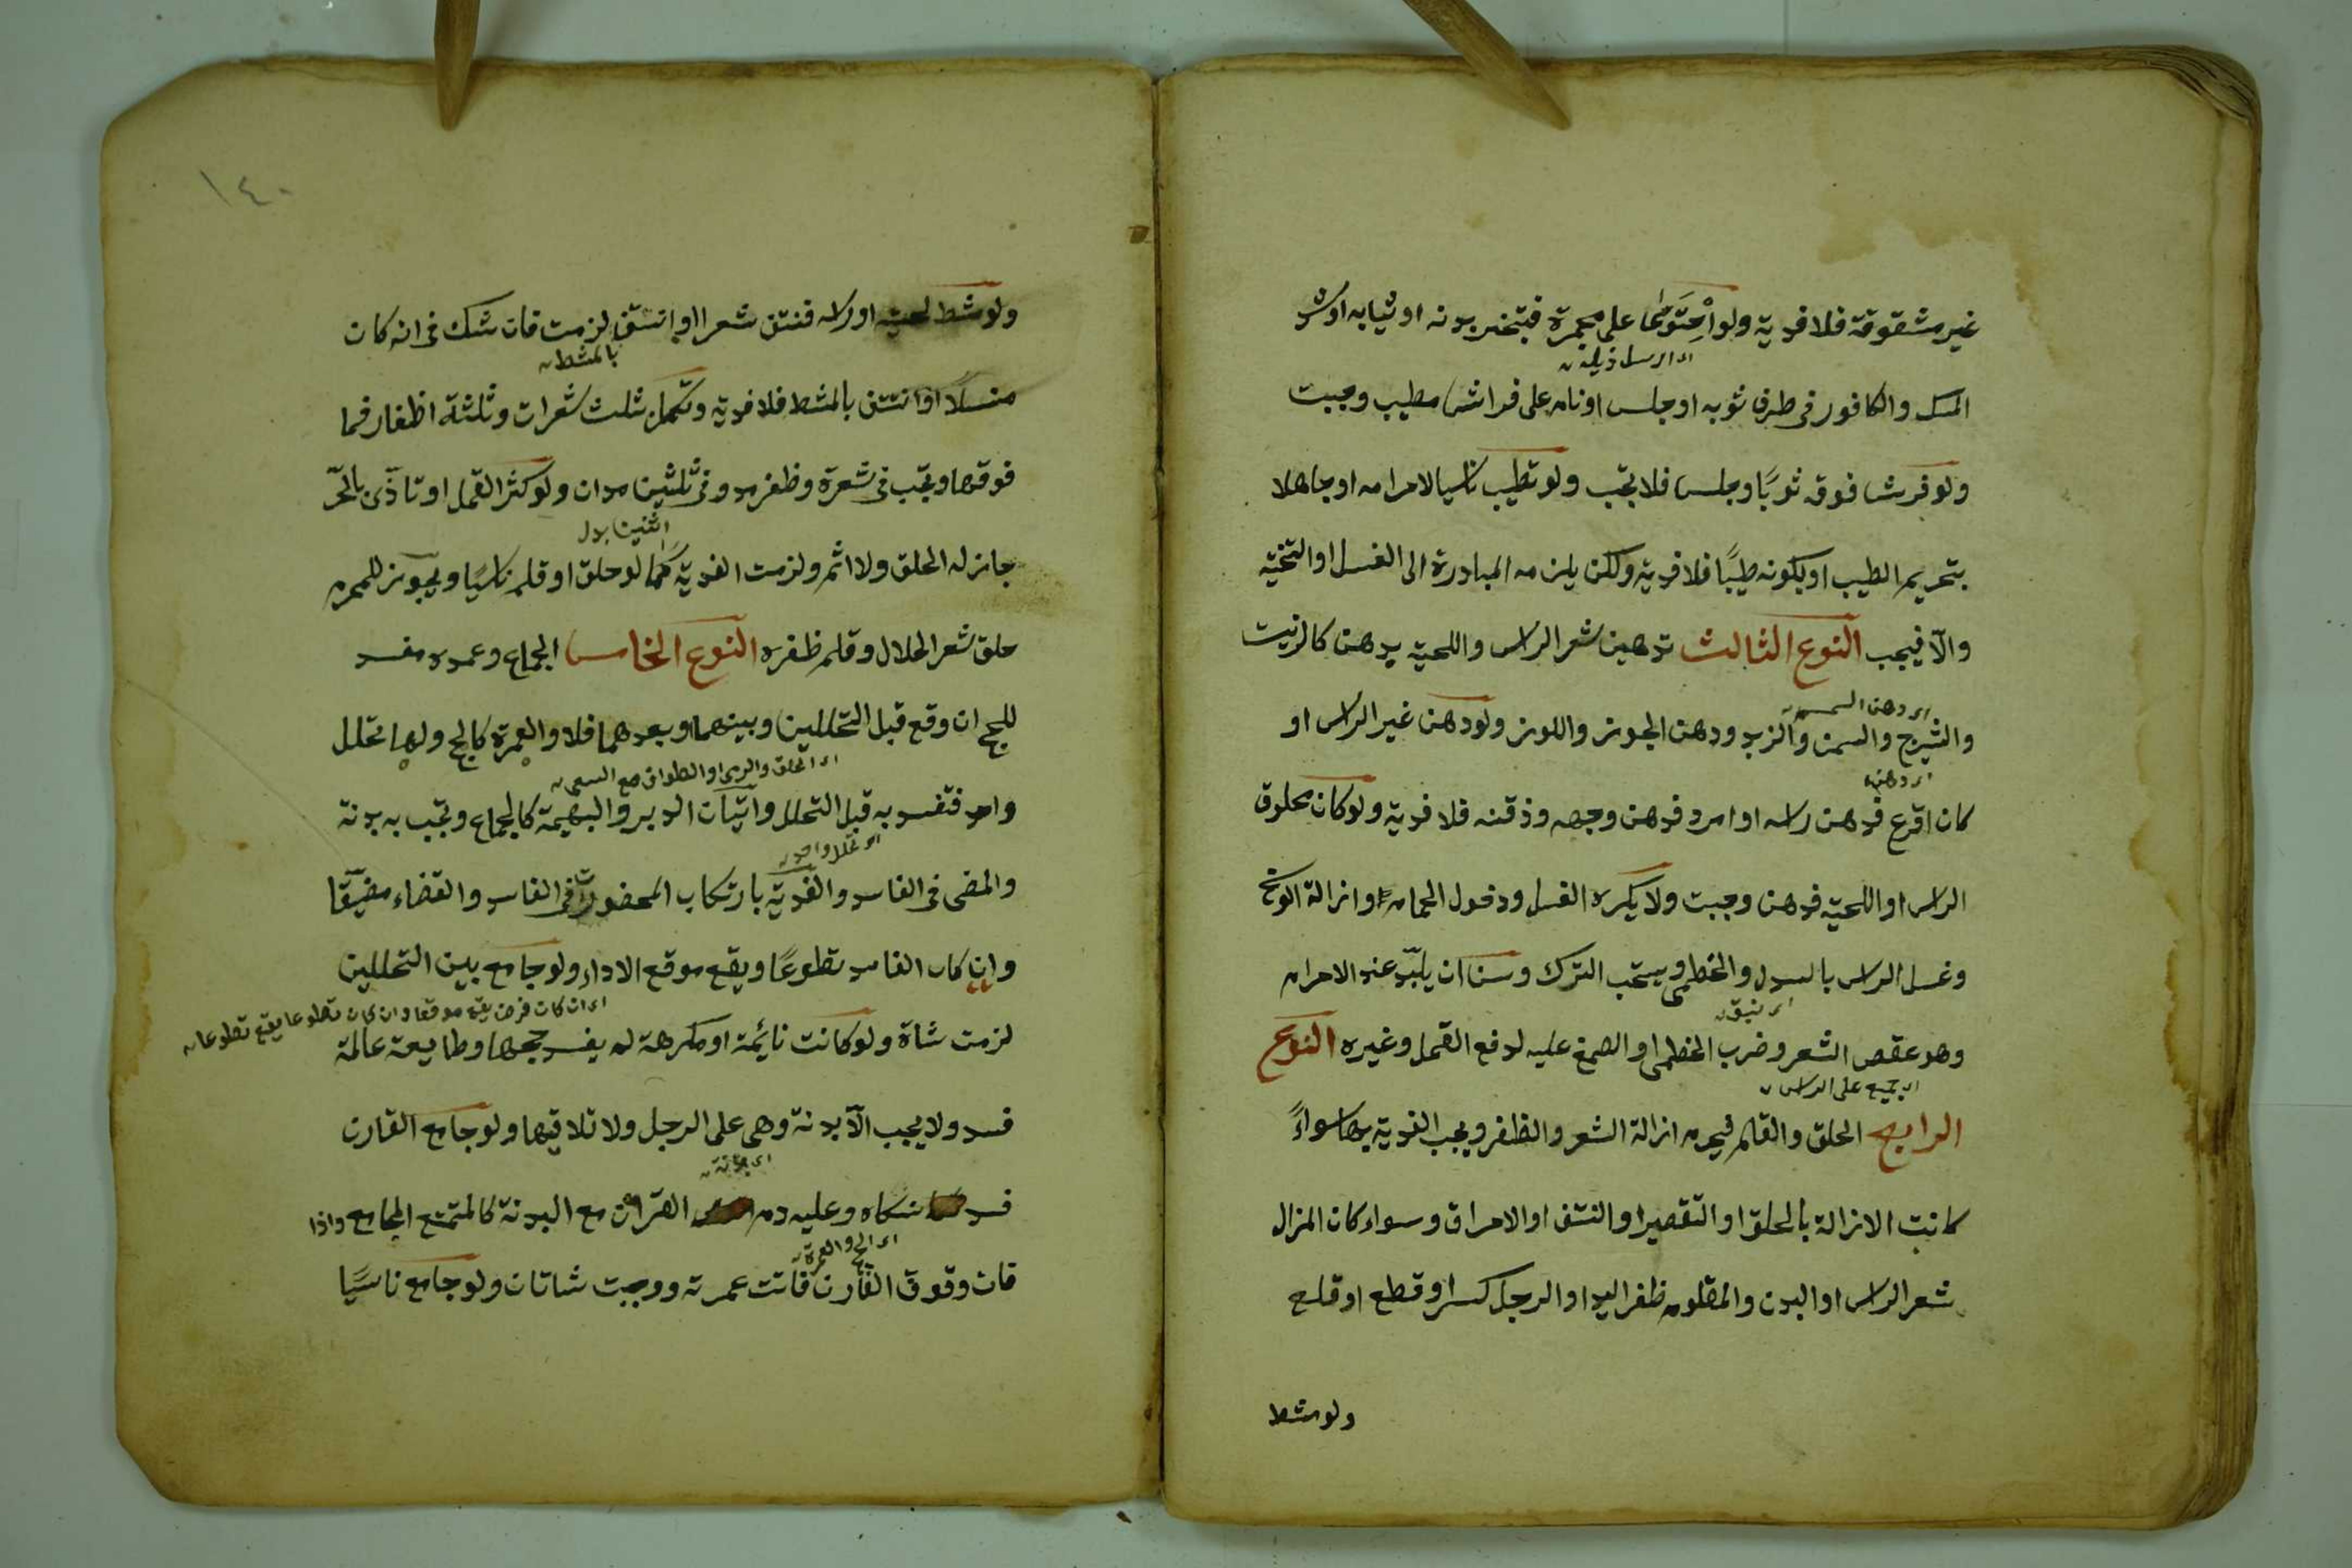 غير مشقوقة فلا فدية ولو احتوى على مجمرة فتبخر بدنه او ثيابه او شد
اى ارسل ذيله
المسك والكافور فى طرف ثوبه او جلس او نام على فراش مطيب وجبت
ولو فرش فوقه ثوبًا وجلس فلا يجب ولو تطيب ناسيا لاحرامه او جاهلا
بتحريم الطيب او بكونه طيبًا فلا فدية ولكن يلزمه المبادرة الى الغسل او التنحية
والّا فيجب النوع الثالث تدهين شعر الراس واللحية بدهن كالزيت
اى دهن السمسم
والشيرج والسمن والزبد ودهن الجوز واللوز ولو دهن غير الراس او
اى دهن
كان اقرع فدهن راسه او امرد فدهن وجهه وذقنه فلا فدية ولو كان محلوق
الراس او اللحية فدهن وجبت ولا يكره الغسل ودخول الحمام وازالة الوسخ
وغسل الراس بالسدر والخطمى ويستحب الترك وسن ان يلبّد عند الاحرام
وهو عقص الشعر وضرب الخطمى او الصمغ عليه لدفع القمل وغيره النوع
اى يجمع على الراس
الرابع الحلق والقلم فيحرم ازالة الشعر والظفر ويجب الفدية بها سواءً
كانت الازالة بالحلق او التقصير او النتف او الاحراق وسواء كان المزال
شعر الراس او البدن والمقلوم ظفر اليد او الرجل كسر او قطع او قلع
ولو مشط
١٤٠
ولو مشط لحيته او راسه فنتف شعرا او انتتف لزمت فان شك فى انه كان
بالمشط
منسلًا او انتتف بالمشط فلا فدية وتكمل بثلث شعرات وثلثة اظفار فما
فوقها ويجب فى شعرة وظفر مد وفى ثلثين مدان ولو كثر القمل او تاذّى بالحرّ
اثنين بدل
جاز له الحلق ولا اثم ولزمت الفدية كما لو حلق او قلم ناسيًا ويجوز للمحرم
حلق شعر الحلال وقلم ظفره النوع الخامس الجماع وعمده مفسد
للحج ان وقع قبل التحللين وبينهما وبعدهما فلا والعمرة كالحج ولها تحلل
اى الحلق والرمى او الطواف مع السعى
واحد فتفسد به قبل التحلل واتيان الدبر والبهيمة كالجماع وتجب به بدنة
اى تحلل واحد
والمضى فى الفاسد والفدية بارتكاب المحضورات فى الفاسد والقضاء مضيّقا
وان كان الفاسد تطوعًا ويقع موقع الاداء ولو جامع بين التحللين
اى ان كان فرض يقع موقعا وان كان تطوعا يقع تطوعا
لزمت شاة ولو كانت نائمة او مكرهة لم يفسد حجها وطايعة عالمة
فسد ولا يجب الّا بدنة وهى على الرجل ولا تلاقيها ولو جامع القارن
فسد نسكاه وعليه دم القران مع البدنة كالمتمتع المجامع واذا
اى الحج والعمرة
فات وقوف القارن فاتت عمرته ووجبت شاتان ولو جامع ناسيًا